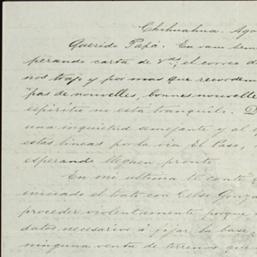 Chihuahua, Ago
Querido Papá. En vano hem
perando carta de Vds; el correo d
nos trajo y por mas que recordem
"pas de nouvelles, bonnes nouvelle
espíritu no está tranquilo. D
una inquietud semejante y al
estas líneas por la vía El Paso,
esperando lleguen pronto.
En mi última te conté
iniciado el trato con Celso Gonza
proceder violentamente porque
datos necesarios a fijar la base
ninguna venta de terrenos que